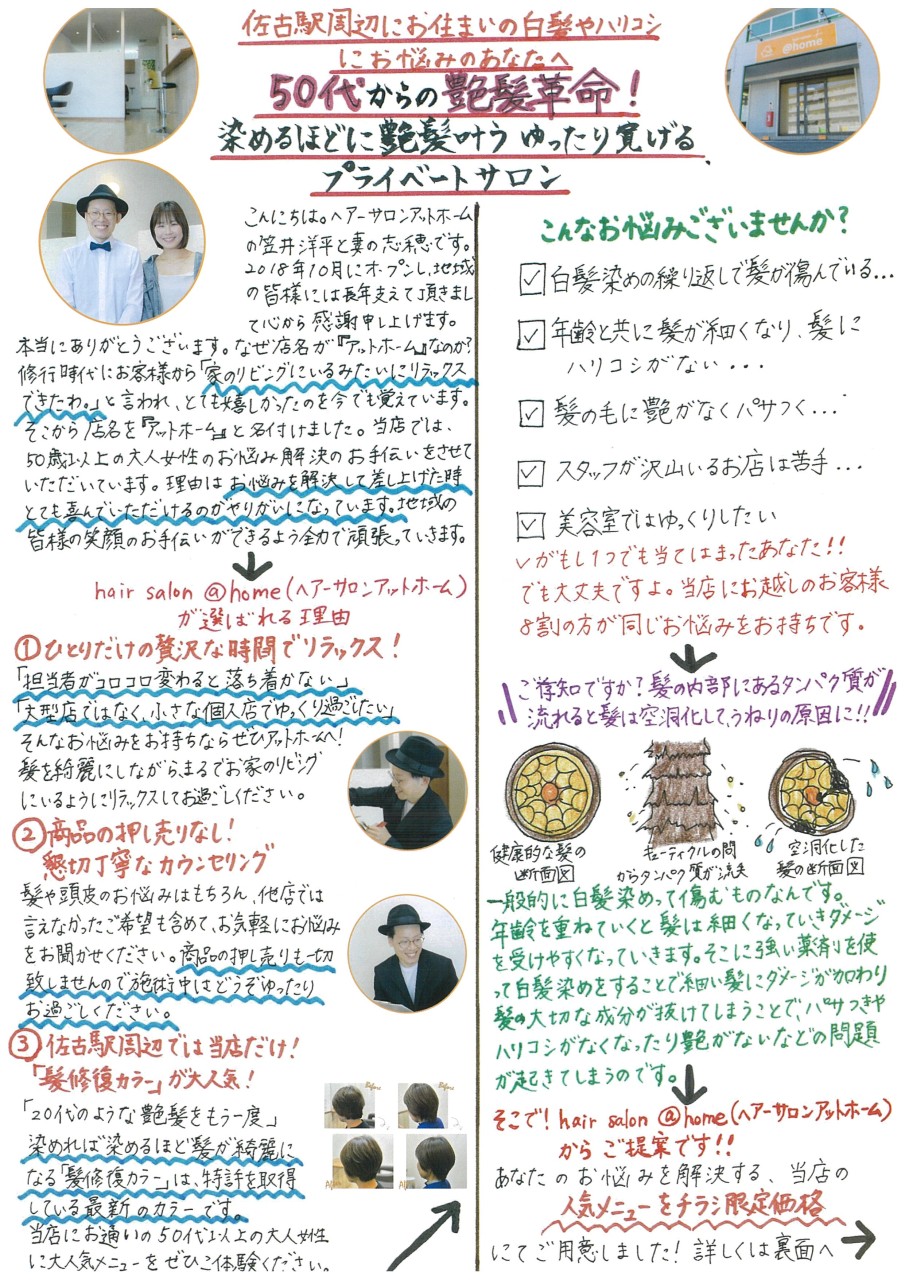 佐古駅周辺にお住まいの白髪やハリコシ
にお悩みのあなたへ
50代からの艶髪革命!
染めるほどに艶髪叶う ゆったり寛げる
プライベートサロン
@home
こんにちは。ヘアーサロンアットホーム
の笠井洋平と妻の志穂です。
2018年10月にオープンし、地域
の皆様には長年支えて頂きまし
て心から感謝申し上げます。
本当にありがとうございます。なぜ店名が『アットホーム』なのか?
修行時代にお客様から「家のリビングにいるみたいにリラックス
できたわ。」と言われ、とても嬉しかったのを今でも覚えています。
そこから店名を『アットホーム』と名付けました。当店では、
50歳以上の大人女性のお悩み解決のお手伝いをさせて
いただいています。理由はお悩みを解決して差し上げた時
とても喜んでいただけるのがやりがいになっています。地域の
皆様の笑顔のお手伝いができるよう全力で頑張っていきます。
hair salon @home(ヘアーサロンアットホーム)
が選ばれる理由
①ひとりだけの贅沢な時間でリラックス!
「担当者がコロコロ変わると落ち着かない…」
「大型店ではなく、小さな個人店でゆっくり過ごしたい」
そんなお悩みをお持ちならぜひアットホームへ!
髪を綺麗にしながら、まるでお家のリビング
にいるようにリラックスしてお過ごしください。
②商品の押し売りなし!
懇切丁寧なカウンセリング
髪や頭皮のお悩みはもちろん、他店では
言えなかったご希望も含めて、お気軽にお悩み
をお聞かせください。商品の押し売りも一切
致しませんので施術中はどうぞゆったり
お過ごしください。
③佐古駅周辺では当店だけ!
「髪修復カラー」が大人気!
「20代のような艶髪をもう一度」
染めれば染めるほど髪が綺麗に
なる「髪修復カラー」は、特許を取得
している最新のカラーです。
当店にお通いの50代以上の大人女性
に大人気メニューをぜひご体験ください。
Before
Before
こんなお悩みございませんか?
☑白髪染めの繰り返しで髪が傷んでいる...
☑年齢と共に髪が細くなり、髪に
ハリコシがない...
☑髪の毛に艶がなくパサつく...
☑スタッフが沢山いるお店は苦手...
☑美容室ではゆっくりしたい
✓がもし1つでも当てはまったあなた!!
でも大丈夫ですよ。当店にお越しのお客様
8割の方が同じお悩みをお持ちです。
ご存知ですか?髪の内部にあるタンパク質が
流れると髪は空洞化して、うねりの原因に!!
健康的な髪の
断面図
キューティクルの間
からタンパク質が流失
空洞化した
髪の断面図
一般的に白髪染めって傷むものなんです。
年齢を重ねていくと髪は細くなっていきダメージ
を受けやすくなっていきます。そこに強い薬剤を使
って白髪染めをすることで細い髪にダメージが加わり
髪の大切な成分が抜けてしまうことで、パサつきや
ハリコシがなくなったり艶がないなどの問題
が起きてしまうのです。
そこで!hair salon @home(ヘアーサロンアットホーム)
からご提案です!!
あなたのお悩みを解決する、当店の
人気メニューをチラシ限定価格
にてご用意しました!詳しくは裏面へ